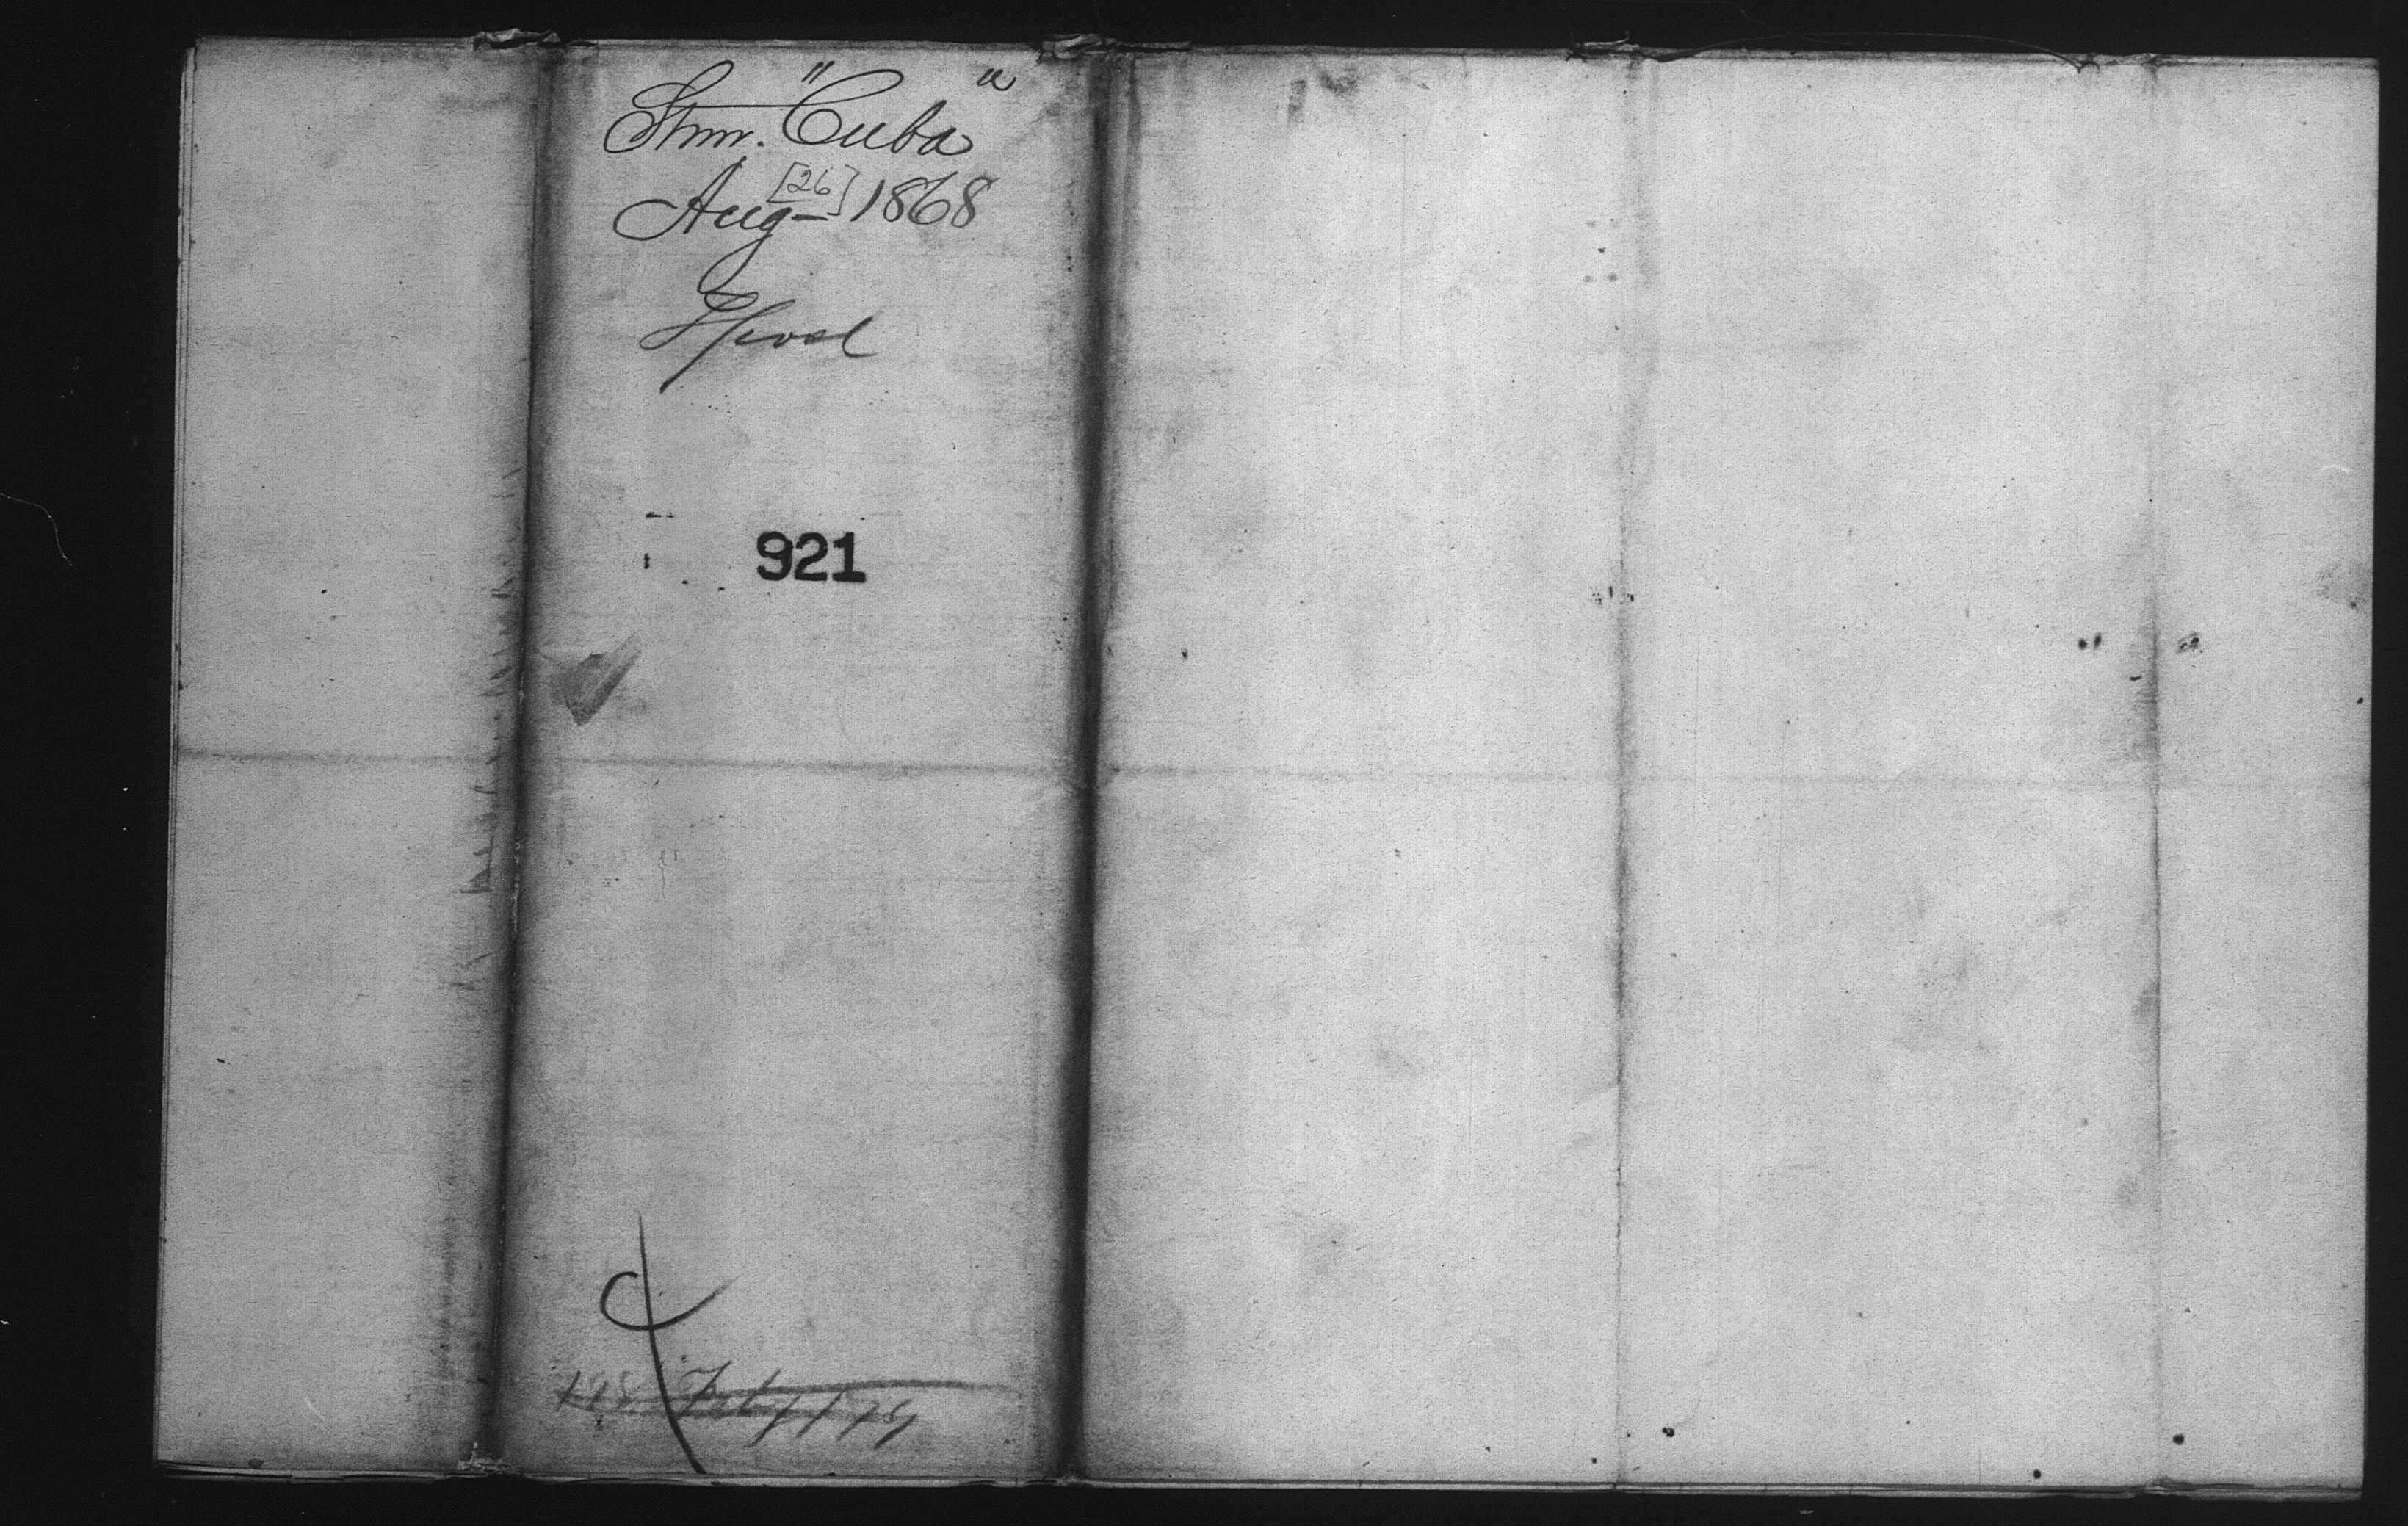 Stmr. "Cuba"
Aug [26] 1868
L'pool
921